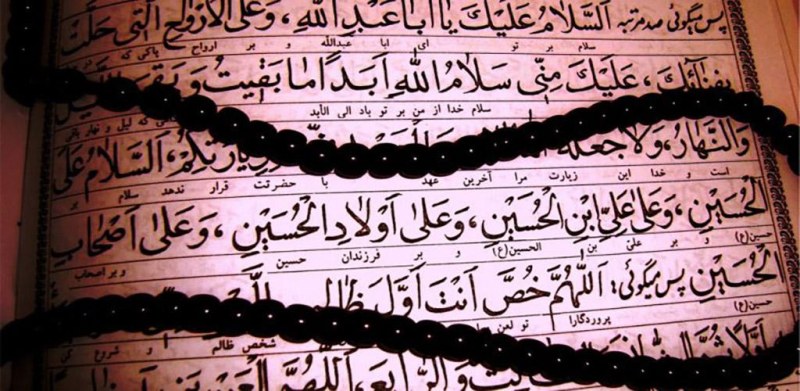 پس میگوئی صد مرتبه اَلسَّلامُ عَلَیْکَ یا اَبا عَبْدِ اللهِ، وَعَلَی الْاَرْواحِ الَّتی حَلَّتْ
سلام بر تو ای ابا عبدالله و بر ارواح پاکی که
بِفِنائِکَ، عَلَیْکَ مِنّی سَلامُ اللهِ اَبَداً ما بَقیتُ وَ بَقِیَ
سلام خدا از من بر تو باد الی الأبد که لیل و نهار باقی
وَالنَّهارُ، وَلا جَعَلَهُ زِیارَتِکُمْ، اَلسَّلامُ عَلَی
است و خدا این زیارت مرا آخرین عهد با حضرتت قرار ندهد سلام بر
الْحُسَیْنِ، وَعَلی عَلِیِّ ابْنِ الْحُسَیْنِ، وَعَلی اَوْلادِ الْحُسَیْنِ، وَعَلی اَصْحابِ
حسین(ع) و بر علی بن الحسین(ع) و بر فرزندان حسین و بر اصحاب
الْحُسَیْنِ پس میگوئی: اَللّهُمَّ خُصَّ اَنْتَ اَوَّلَ
حسین(ع) پروردگارا تو لعن شخص ظالم و شروع کن
وَالرّابِعَ، اَللّهُمَّ الْعَنْ